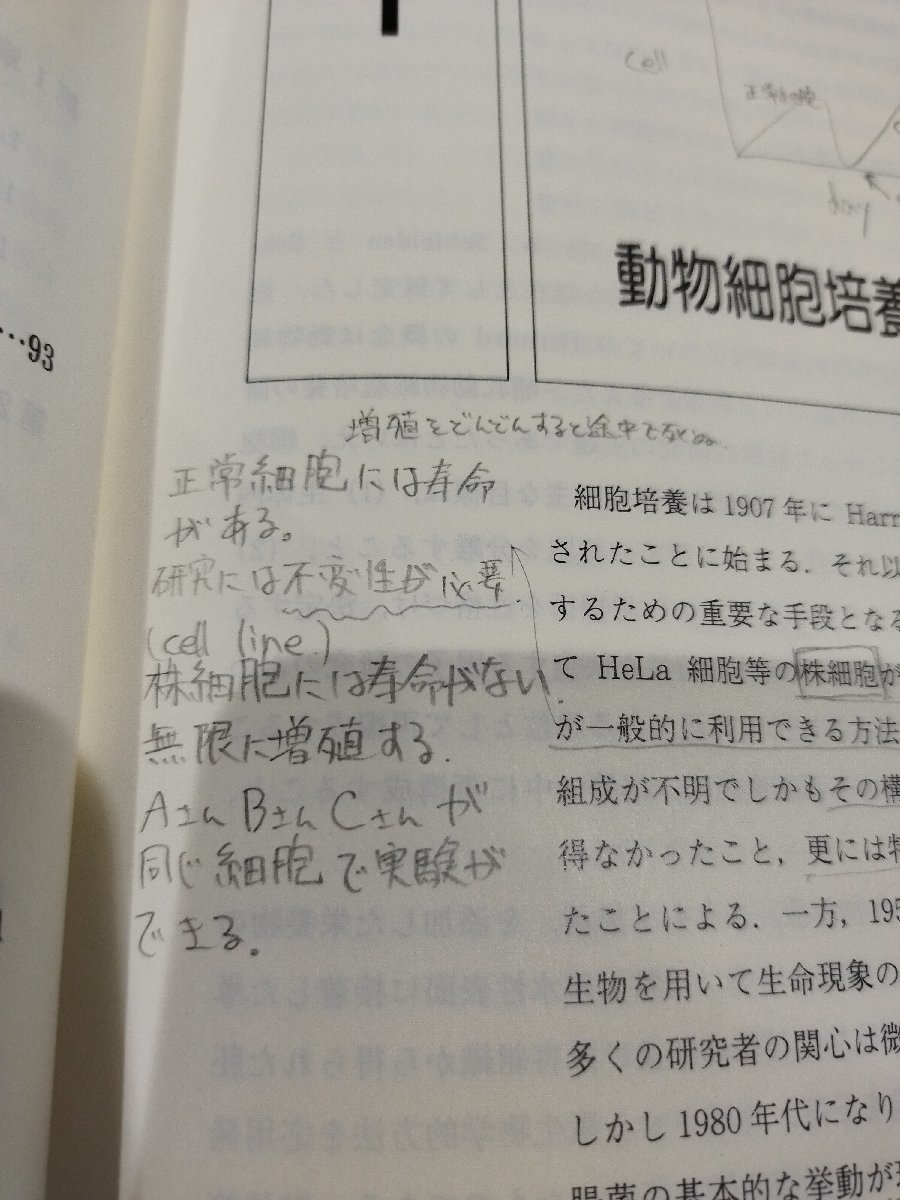 Cell
正常細胞
day
動物細胞培養
…93
増殖をどんどんすると途中で死ぬ
正常細胞には寿命
がある。
研究には不変性が必要
(cell line)
株細胞には寿命がない.
無限に増殖する.
Aさん Bさん Cさんが
同じ細胞で実験が
できる.
細胞培養は1907年に Harr
されたことに始まる．それ以
するための重要な手段となる
て HeLa 細胞等の株細胞が
が一般的に利用できる方法
組成が不明でしかもその構
得なかったこと，更には特
たことによる．一方，195
生物を用いて生命現象の
多くの研究者の関心は微
しかし1980年代になり
腸菌の基本的な挙動が